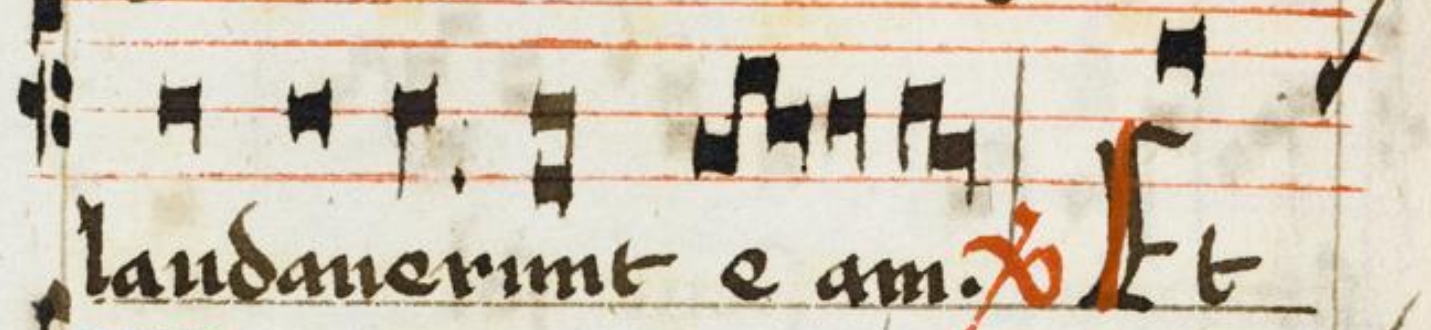 laudauerunt e am. ℟ Et